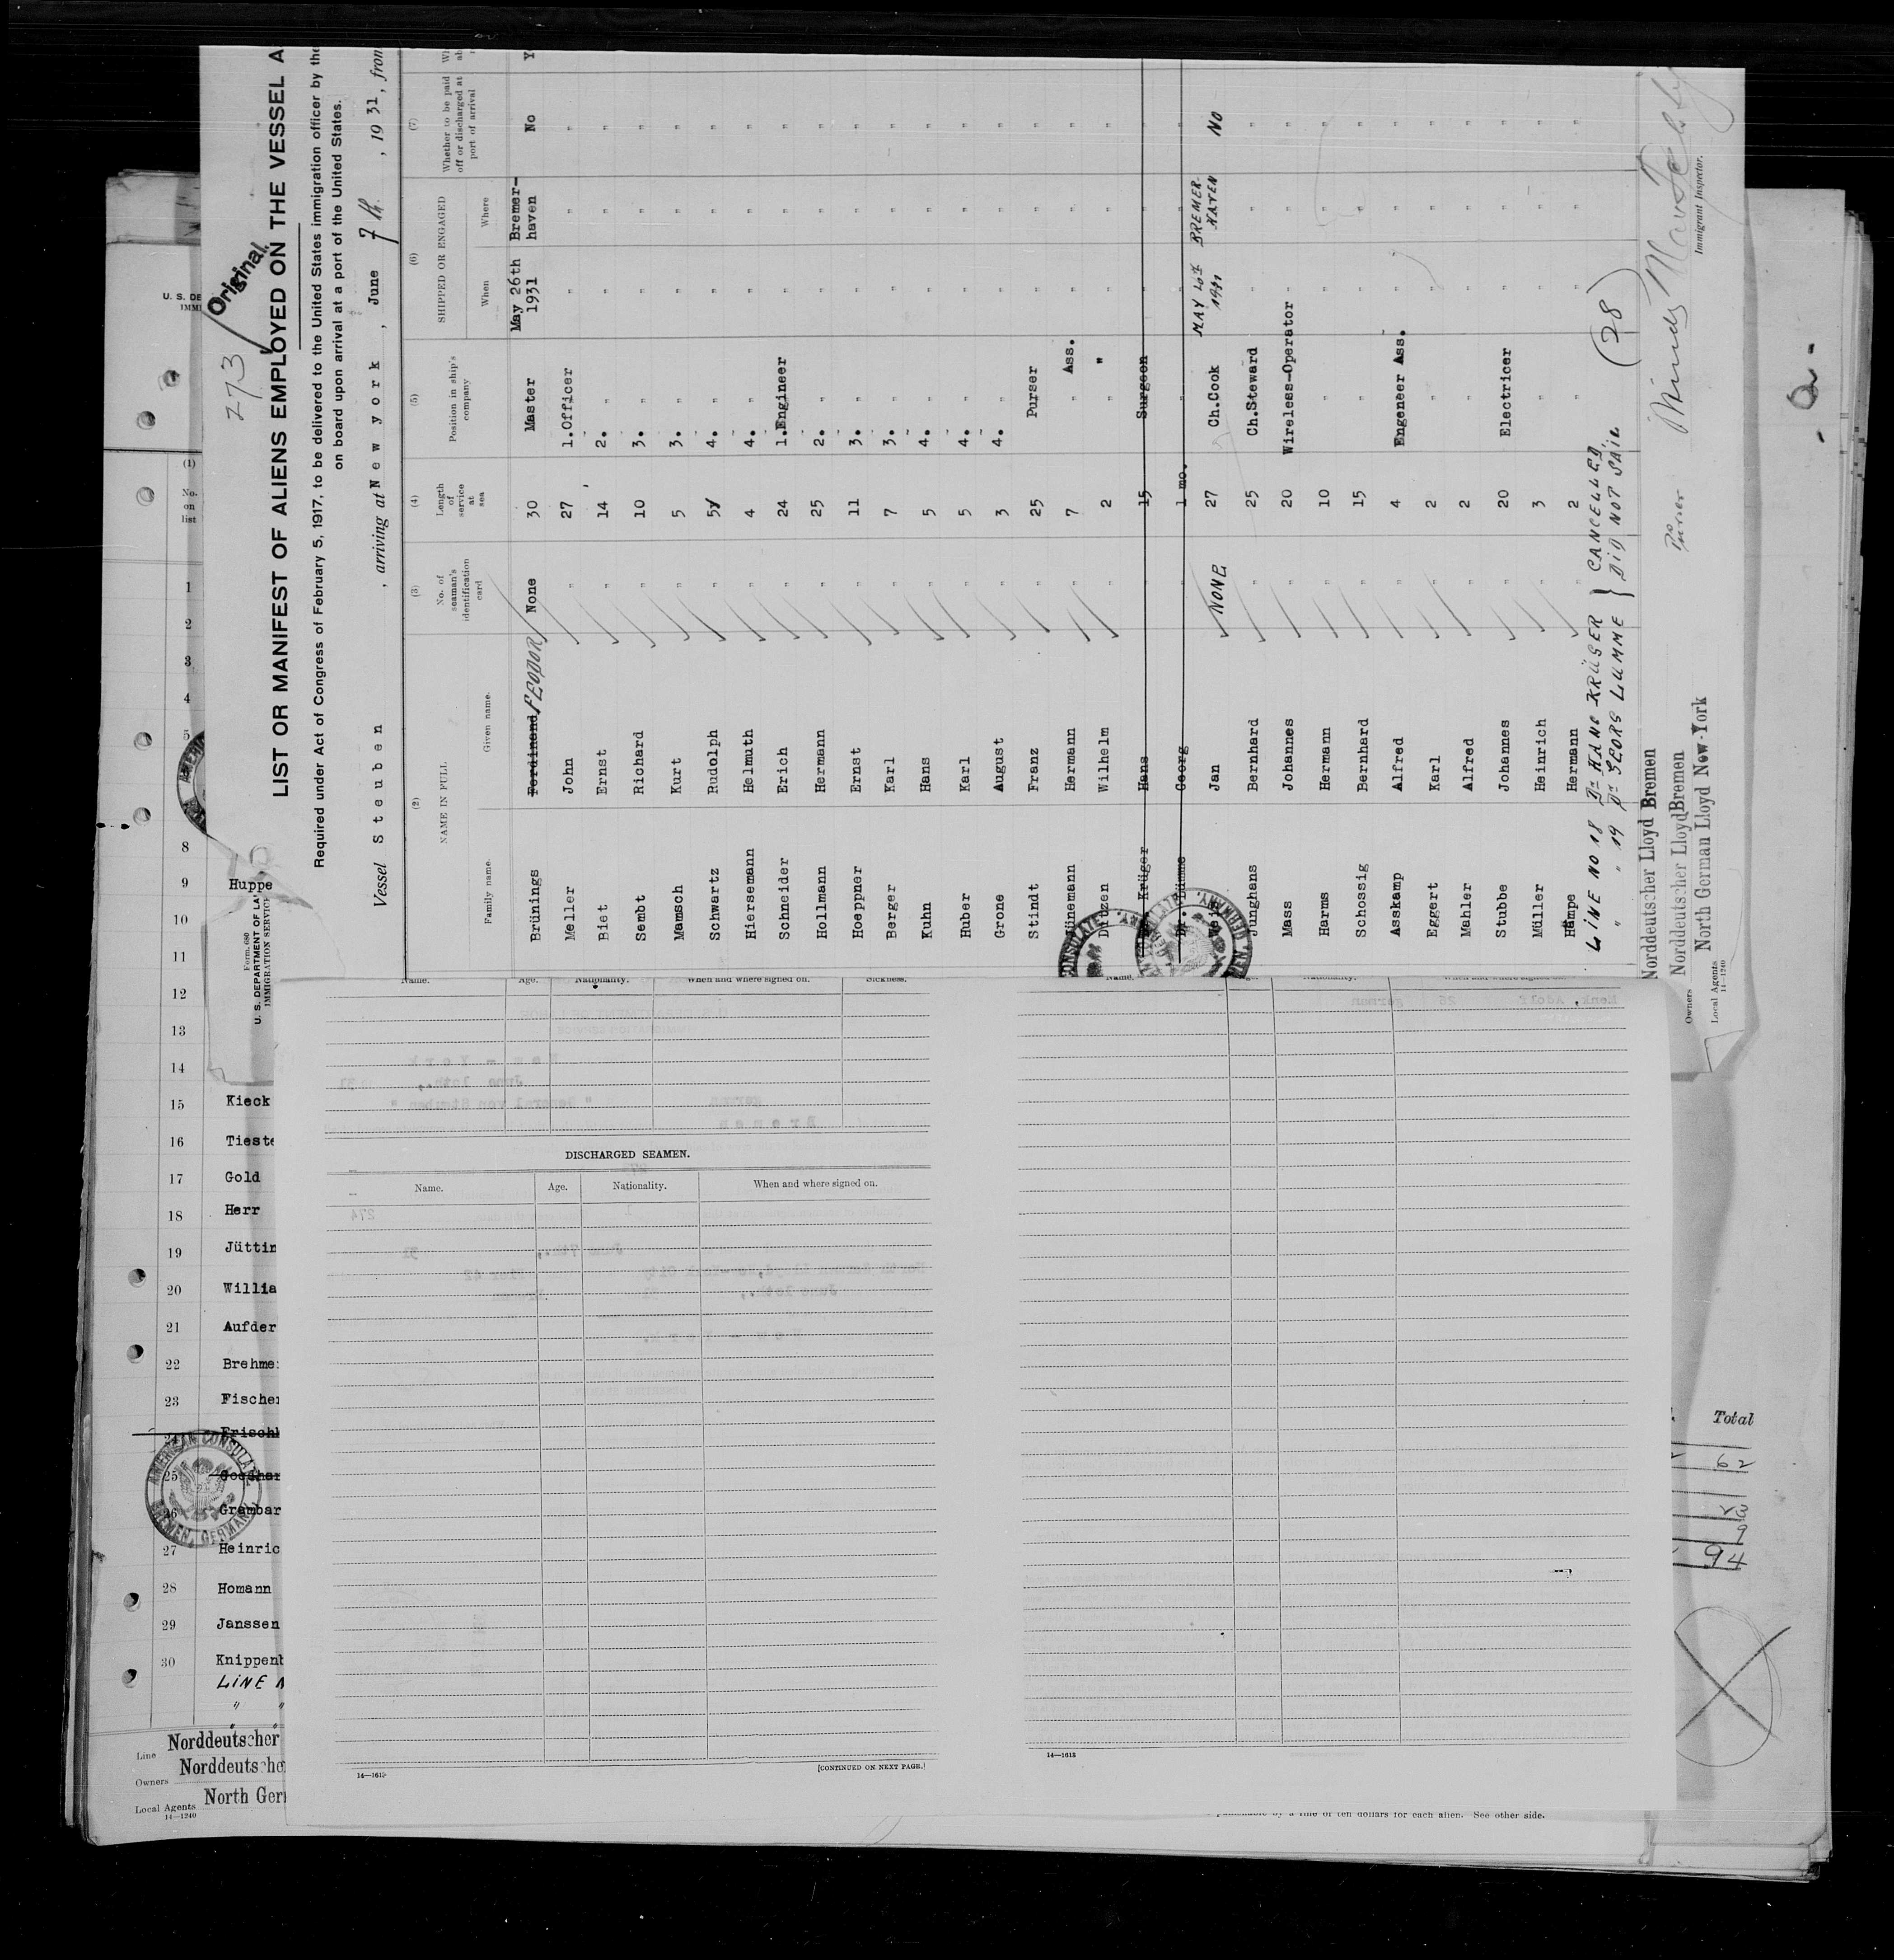 273
Original
LIST OR MANIFEST OF ALIENS EMPLOYED ON THE VESSEL A
Required under Act of Congress of February 5, 1917, to be delivered to the United States immigration officer by the
on board upon arrival at a port of the United States.
Vessel Steuben , arriving at New york , June 7th , 1931, from
(2) (3) (4) (5) (6) (7)
NAME IN FULL
Family name. Given name.
No. of seaman's identification card
Length of service at sea
Position in ship's company
SHIPPED OR ENGAGED
When Where
Whether to be paid off or discharged at port of arrival
Brünings Ferdinand FEODOR None 30 Master May 26th 1931 Bremer-haven No
Meller John " 27 1.Officer " " "
Biet Ernst " 14 2. " " " "
Sembt Richard " 10 3. " " " "
Mamsch Kurt " 5 3. " " " "
Schwartz Rudolph " 5 4. " " " "
Hiersemann Helmuth " 4 4. " " " "
Schneider Erich " 24 1.Engineer " " "
Hollmann Hermann " 25 2. " " " "
Hoeppner Ernst " 11 3. " " " "
Berger Karl " 7 3. " " " "
Kuhn Hans " 5 4. " " " "
Huber Karl " 5 4. " " " "
Grone August " 3 4. " " " "
Stindt Franz " 25 Purser " " "
Jünemann Hermann " 7 " Ass. " " "
Wilhelm " 2 " " " " "
Krüger Hans " 15 Surgeon " " "
Dr. Lümme Georg " 1 mo. " " " "
Jan NONE 27 Ch.Cook MAY 26th 1931 BREMER-HAVEN NO
Junghans Bernhard " 25 Ch.Steward " " "
Mass Johannes " 20 Wireless-Operator " " "
Harms Hermann " 10 " " " "
Schossig Bernhard " 15 " " " "
Asskamp Alfred " 4 Engeneer Ass. " " "
Eggert Karl " 2 " " " "
Mahler Alfred " 2 " " " "
Stubbe Johannes " 20 Electricer " " "
Müller Heinrich " 3 " " " "
Hampe Hermann " 2 " " " "
LINE NO 18 Dr HANS KRÜGER } CANCELLED,
" " 19 Dr GEORG LUMME } DID NOT SAIL (28)
Norddeutscher Lloyd Bremen
Owners Norddeutscher Lloyd Bremen
Local Agents North German Lloyd New-York
14—1240
Immigrant Inspector.
Form 680
U. S. DEPARTMENT OF LA
IMMIGRATION SERVICE
U. S. DE
IMMI
(1)
No. on list
1
2
3
4
5
8
9 Huppe
10
11
12
13
14
15 Kieck
16 Tieste
17 Gold
18 Herr
19 Jüttin
20 Willia
21 Aufder
22 Brehme
23 Fischer
24 Frischk
25
26 Grambar
27 Heinric
28 Homann
29 Janssen
30 Knippenb
LINE N
" "
AMERICAN CONSULATE
BREMEN, GERMANY
Line Norddeutscher
Owners Norddeutsche
Local Agents North Ger
14—1240
Name. Age. Nationality. When and where signed on. Sickness.
DISCHARGED SEAMEN.
Name. Age. Nationality. When and where signed on.
14—1613
[CONTINUED ON NEXT PAGE.]
Name. Nationality. When and where signed on.
14—1613
punishable by a fine of ten dollars for each alien. See other side.
Total
62
9
94